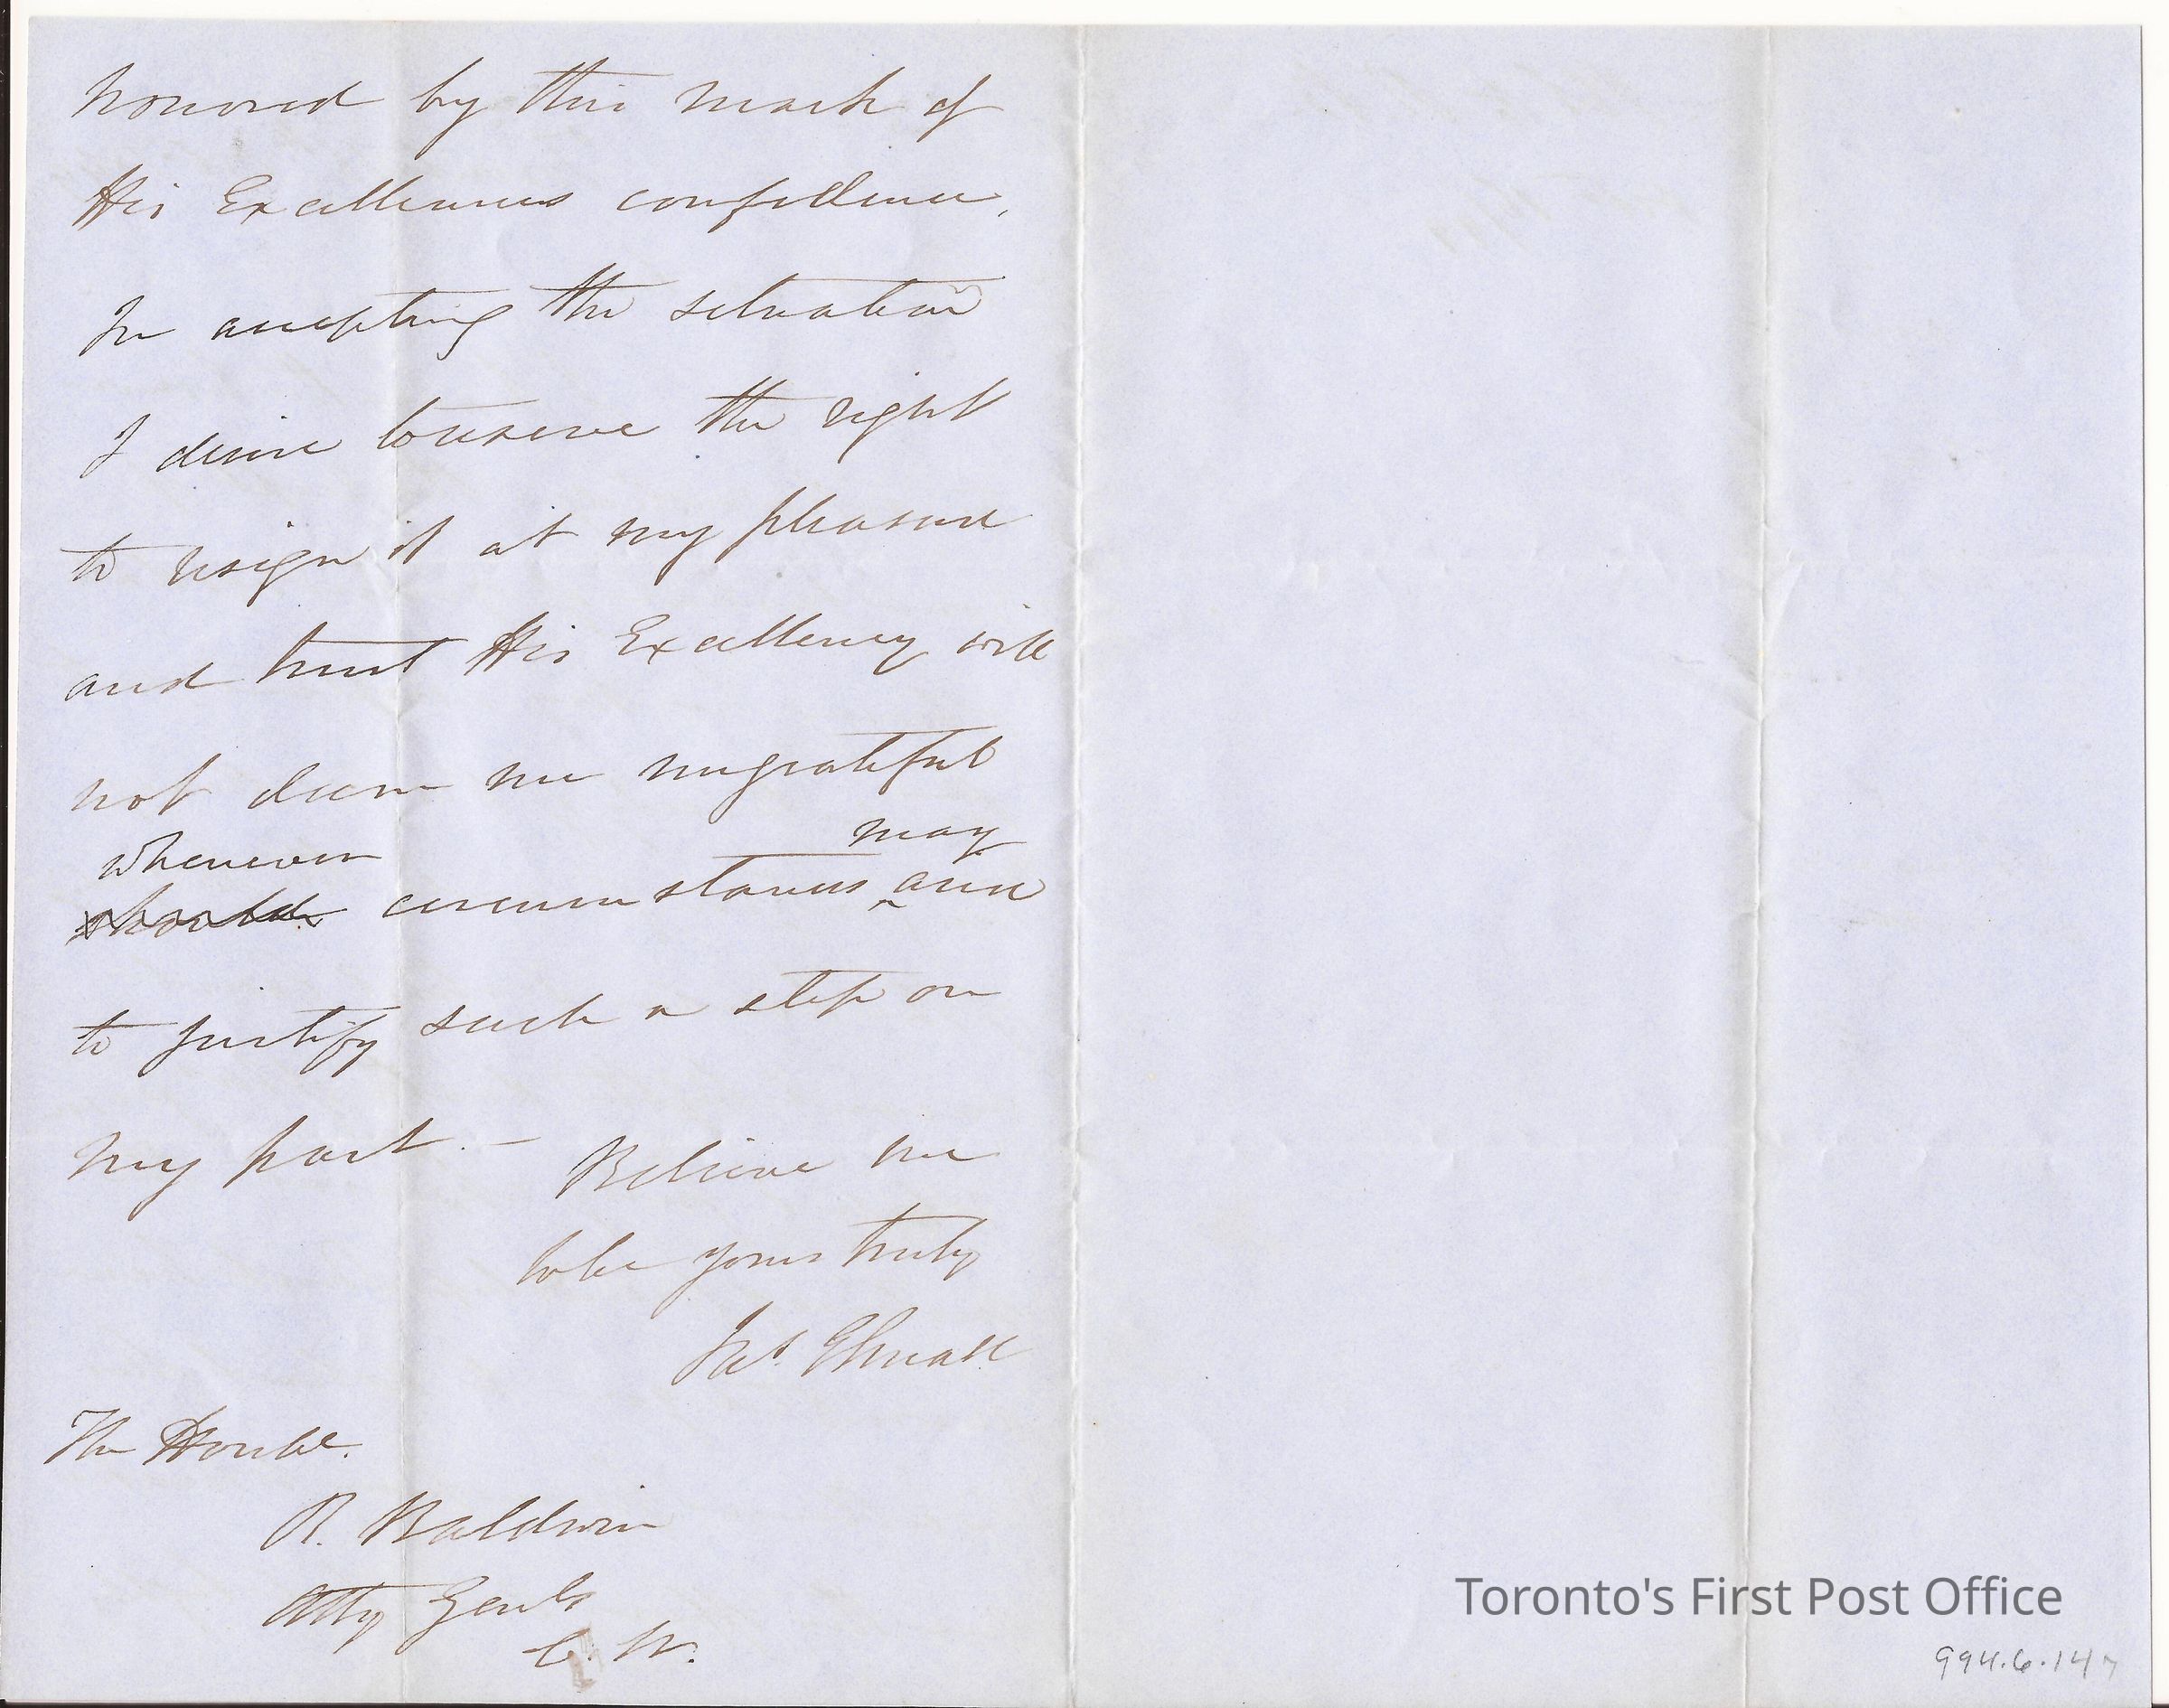 honored by this mark of
His Excellencies confidence.
In accepting the situation
I desire to reserve the right
to resign it at my pleasure
and trust His Excellency will
not deem me ungrateful
whenever may
should circumstances ^ arise
to justify such a step on
my part. —
Believe me
to be yours truly
Jas.
The Honble.
R. Baldwin
Atty Genl
C. W.
Toronto's First Post Office
994.6.147